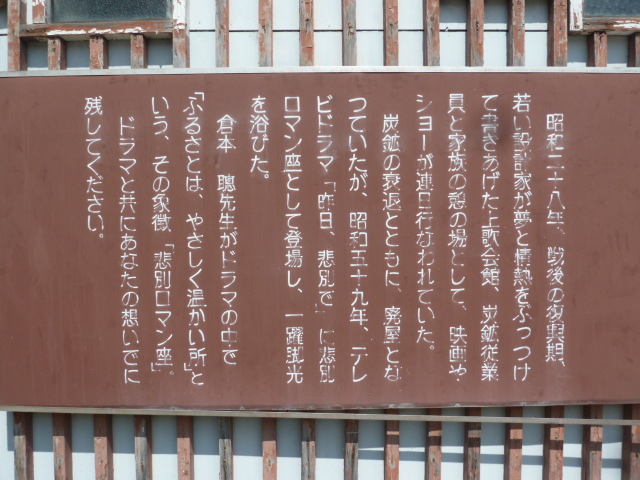 昭和二十八年、戦後の復興期、
若い設計家が夢と情熱をぶっつけ
て書きあげた上歌会館、炭鉱従業
員と家族の憩の場として、映画や
ショーが連日行なわれていた。
炭鉱の衰退とともに、廃屋とな
っていたが、昭和五十九年、テレ
ビドラマ「昨日、悲別で」に悲別
ロマン座として登場し、一躍脚光
を浴びた。
倉本 聰先生がドラマの中で
「ふるさとは、やさしく温かい所」と
いう、その象徴「悲別ロマン座」。
ドラマと共にあなたの想いでに
残してください。